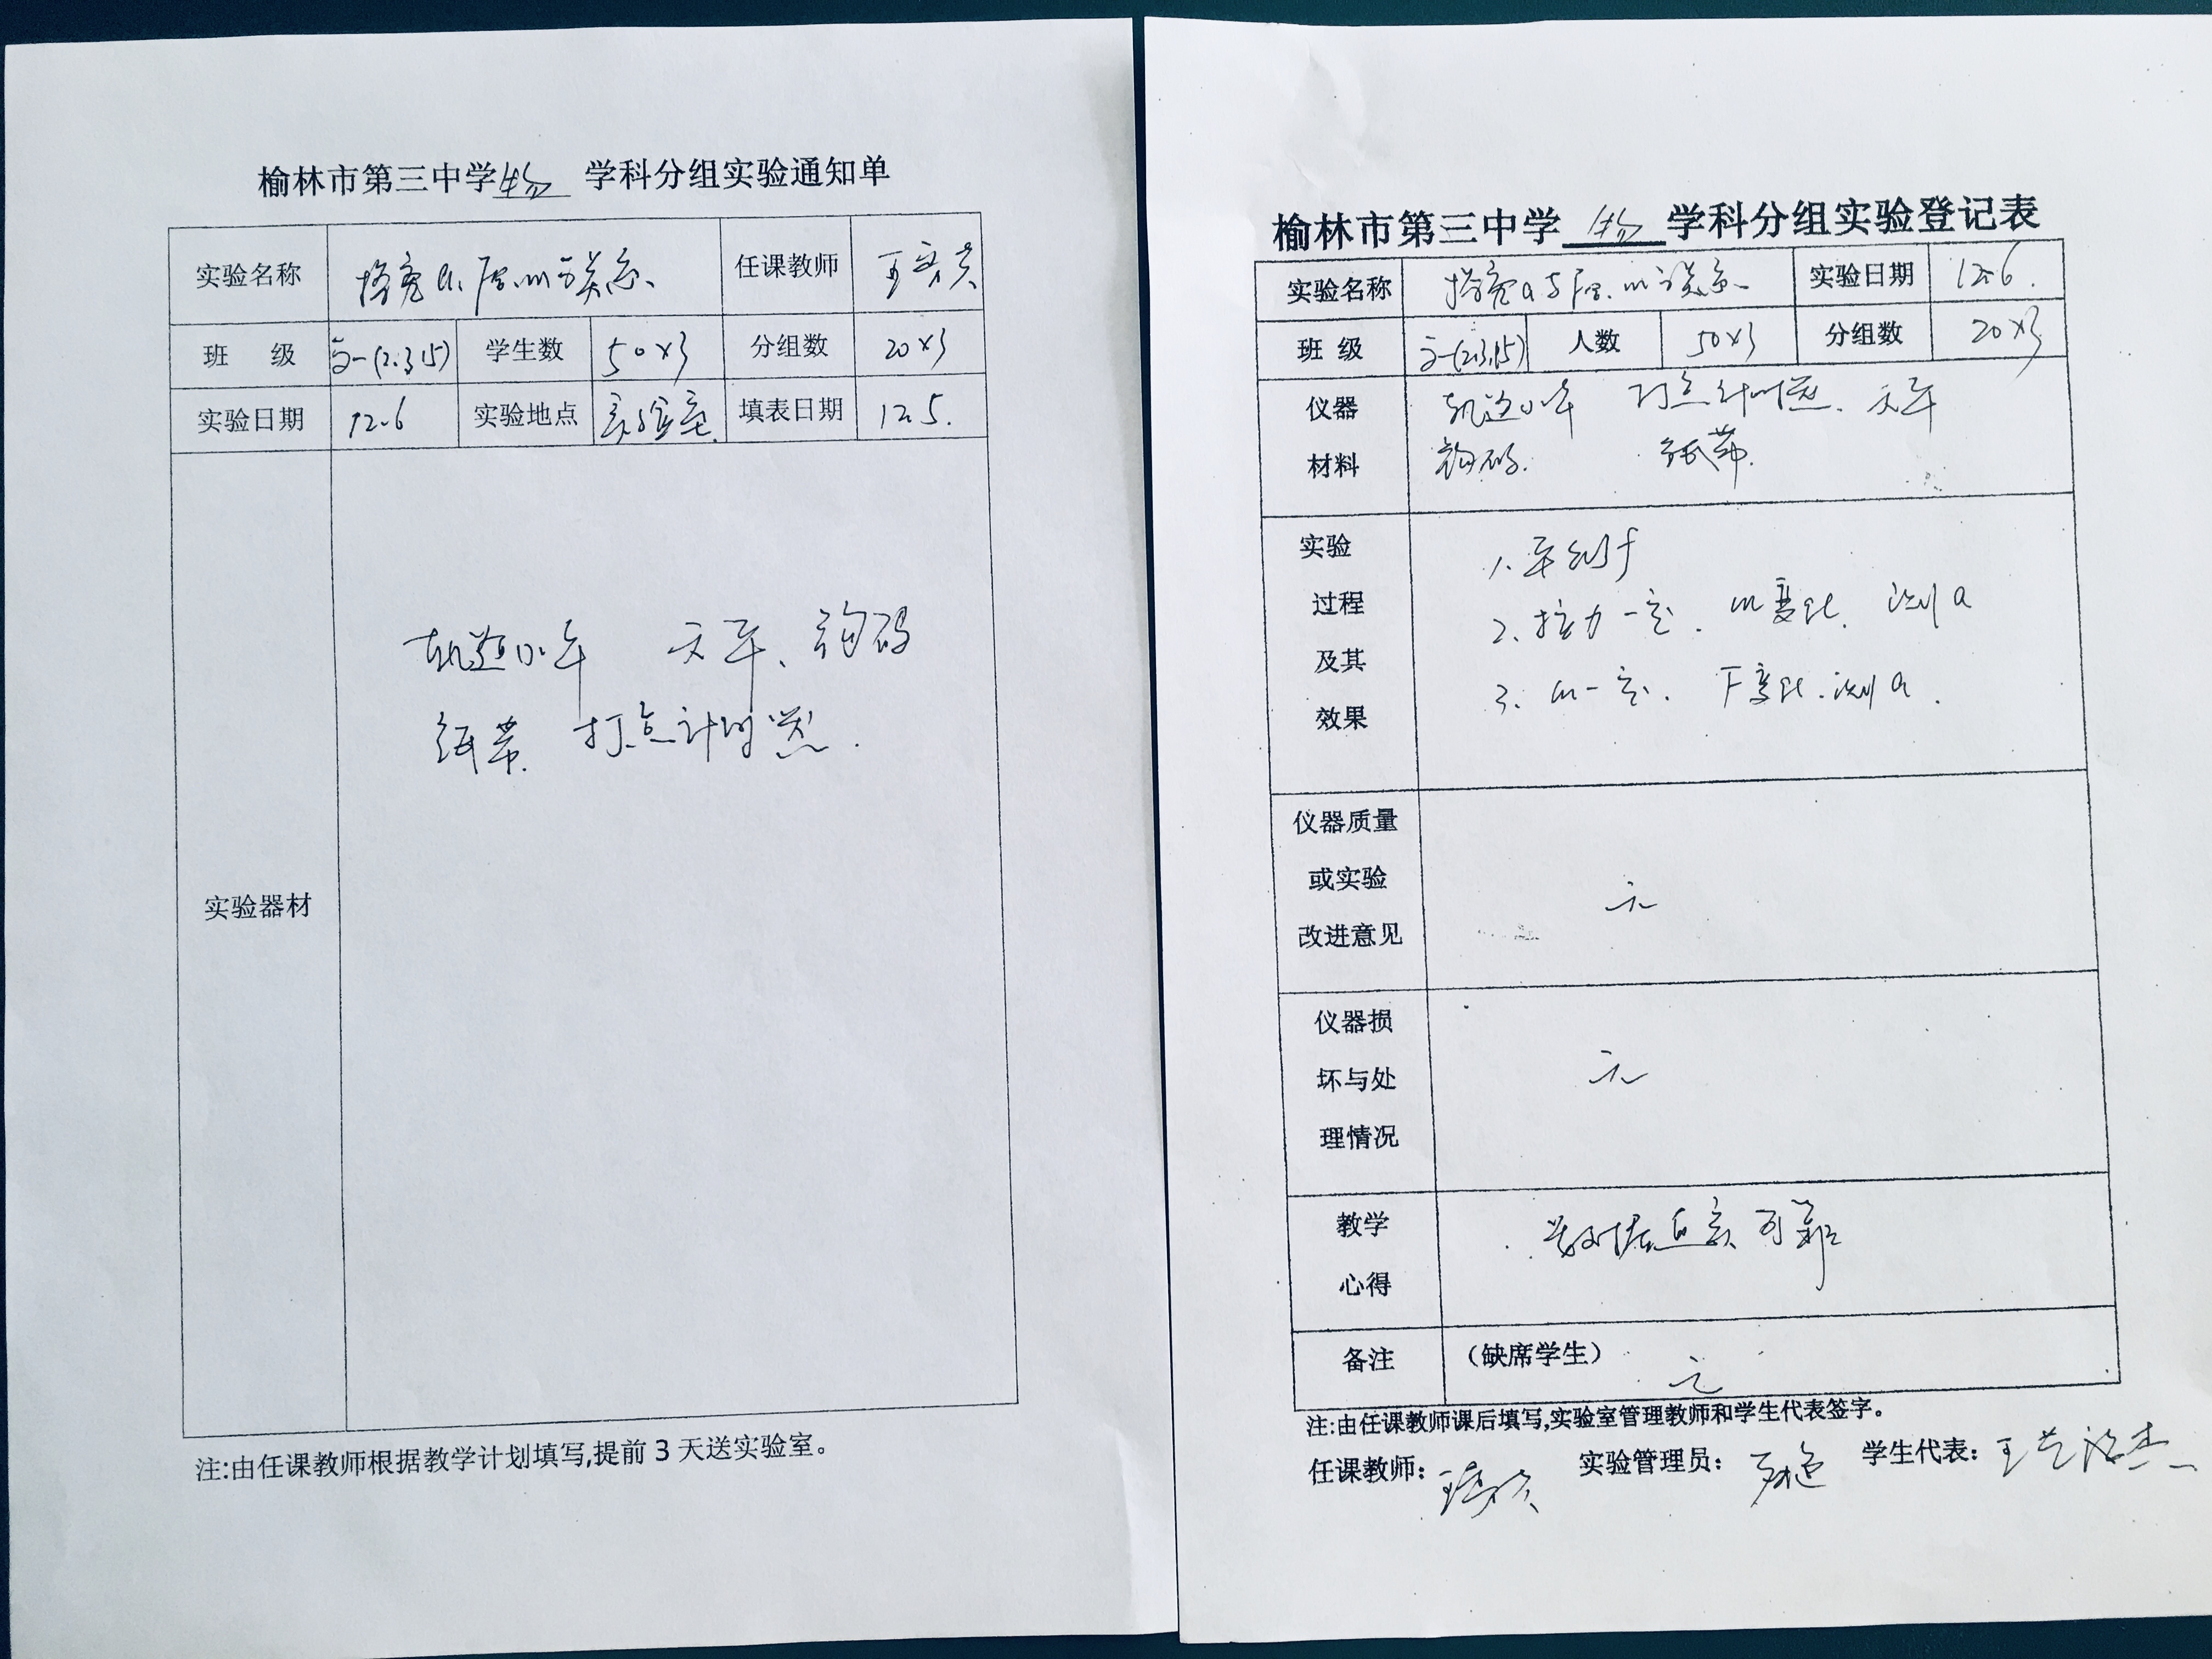 榆林市第三中学 物 学科分组实验通知单
实验名称 探究a.F合.m的关系. 任课教师
班 级 高一(2.3.15) 学生数 50×3 分组数 20×3
实验日期 12.6 实验地点 实验室. 填表日期 12.5.
实验器材
轨道小车 天平、钩码
纸带. 打点计时器.
注:由任课教师根据教学计划填写,提前 3 天送实验室。
榆林市第三中学 物 学科分组实验登记表
实验名称 探究a与F合.m的关系 实验日期 12.6.
班 级 高一(2.3.15) 人数 50×3 分组数 20×3
仪器 轨道小车 打点计时器. 天平
材料 钩码. 纸带.
实验 1.平衡f
过程 2.拉力一定. m变化. 测a
及其 3. m一定. F变化.测a.
效果
仪器质量
或实验 无
改进意见
仪器损
坏与处 无
理情况
教学 数据真实可靠
心得
备注 (缺席学生)
无
注:由任课教师课后填写,实验室管理教师和学生代表签字。
任课教师: 实验管理员: 学生代表: